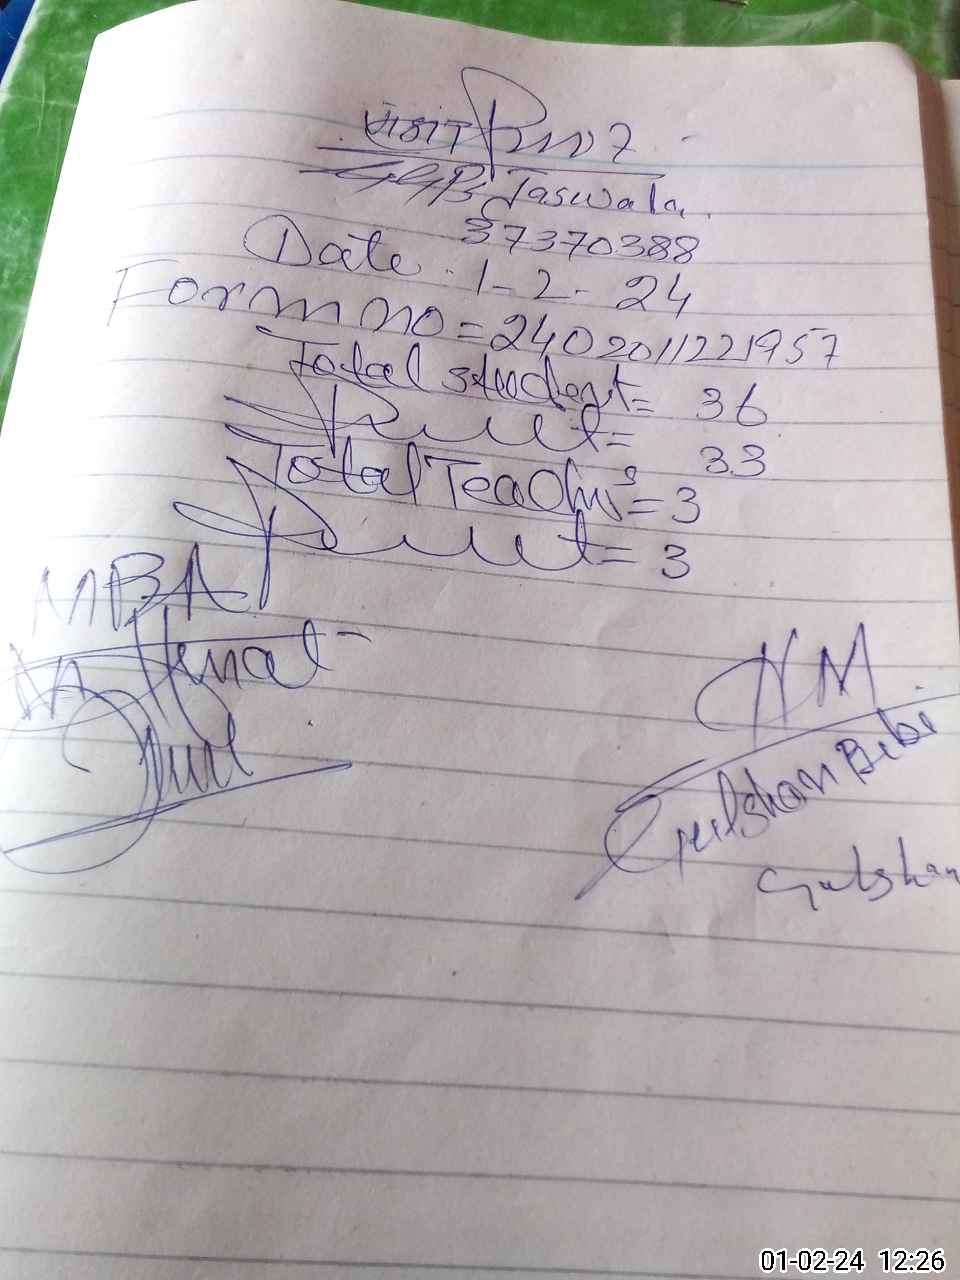 VISIT
GGPS Jaswala
37370388
Date 1-2-24
Form no = 2402011221957
Total student = 36
Present = 33
Total Teachers = 3
Present = 3
MBA
HM
Gulshan Bibi
Gulshan
01-02-24 12:26